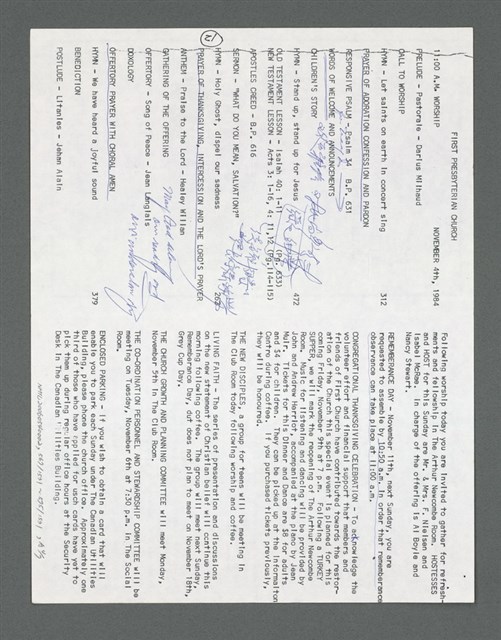 FIRST PRESBYTERIAN CHURCH
11:00 A.M. WORSHIP NOVEMBER 4th, 1984
PRELUDE - Pastorale - Darius Milhaud
CALL TO WORSHIP
HYMN - Let saints on earth in concert sing 312
PRAYER OF ADORATION CONFESSION AND PARDON
RESPONSIVE PSALM - Psalm 34 B.P. 631
WORDS OF WELCOME AND ANNOUNCEMENTS
CHILDREN'S STORY
HYMN - Stand up, stand up for Jesus 472
OLD TESTAMENT LESSON - Isaiah 40: 1-11 (Pg. 633)
NEW TESTAMENT LESSON - Acts 3: 1-16, 4: 11,12 (Pg. 114-115)
APOSTLES CREED - B.P. 616
SERMON - "WHAT DO YOU MEAN, SALVATION?"
HYMN - Holy Ghost, dispel our sadness
PRAYER OF THANKSGIVING, INTERCESSION AND THE LORD'S PRAYER
ANTHEM - Praise to the Lord - Healey Willan
GATHERING OF THE OFFERING
OFFERTORY - Song of Peace - Jean Langlais
DOXOLOGY
OFFERTORY PRAYER WITH CHORAL AMEN
HYMN - We have heard a joyful sound 379
BENEDICTION
POSTLUDE - Litanies - Jehan Alain
Following worship today you are invited to gather for refresh-
ments and fellowship in the Arthur Newcombe Room. HOSTESSES
and HOST for this Sunday are Mr. & Mrs. F. Nielsen and
Isabel McRae. In charge of the offering is Al Boyle and
Nancy Stewart.
REMEMBRANCE DAY - November 11th, next Sunday, you are
requested to assemble by 10:50 a.m. in order that remembrance
observance can take place at 11:00 a.m.
CONGREGATIONAL THANKSGIVING CELEBRATION - To acknowledge the
volunteer effort and financial support that members and
friends of the Church have contributed towards the restor-
ation of the Church this special event is planned for this
coming Friday, November 9th at 6 p.m. Following a TURKEY
SUPPER, we will mark the reopening of the Arthur Newcombe
Room. Music for listening and dancing will be provided by
John and Andrew Herriot, accompanied at the piano by Jean
Muir. Tickets for this Dinner and Dance are $8 for adults
and $4 for children. They can be picked up at the Information
Centre during coffee. If you purchased tickets previously,
they will be honoured.
THE NEW DISCIPLES, a group for teens will be meeting in
The Club Room today following worship and coffee.
LIVING FAITH - The series of presentation and discussions
on the new statement of Christian belief will continue this
morning following coffee. The group will meet next Sunday,
Remembrance Day, but does not plan to meet on November 18th,
Grey Cup Day.
THE CHURCH GROWTH AND PLANNING COMMITTEE will meet Monday,
November 5th in The Club Room.
THE CO-ORDINATION PERSONNEL AND STEWARDSHIP COMMITTEE will be
meeting on Tuesday, November 6th at 7:30 p.m. in The Social
Room.
ENCLOSED PARKING - If you wish to obtain a card that will
enable you to park each Sunday under The Canadian Utilities
Building, please phone the church office. Approximately one
third of those who have applied for such cards have yet to
pick them up during regular office hours at the Security
Desk in the Canadian Utilities Building.